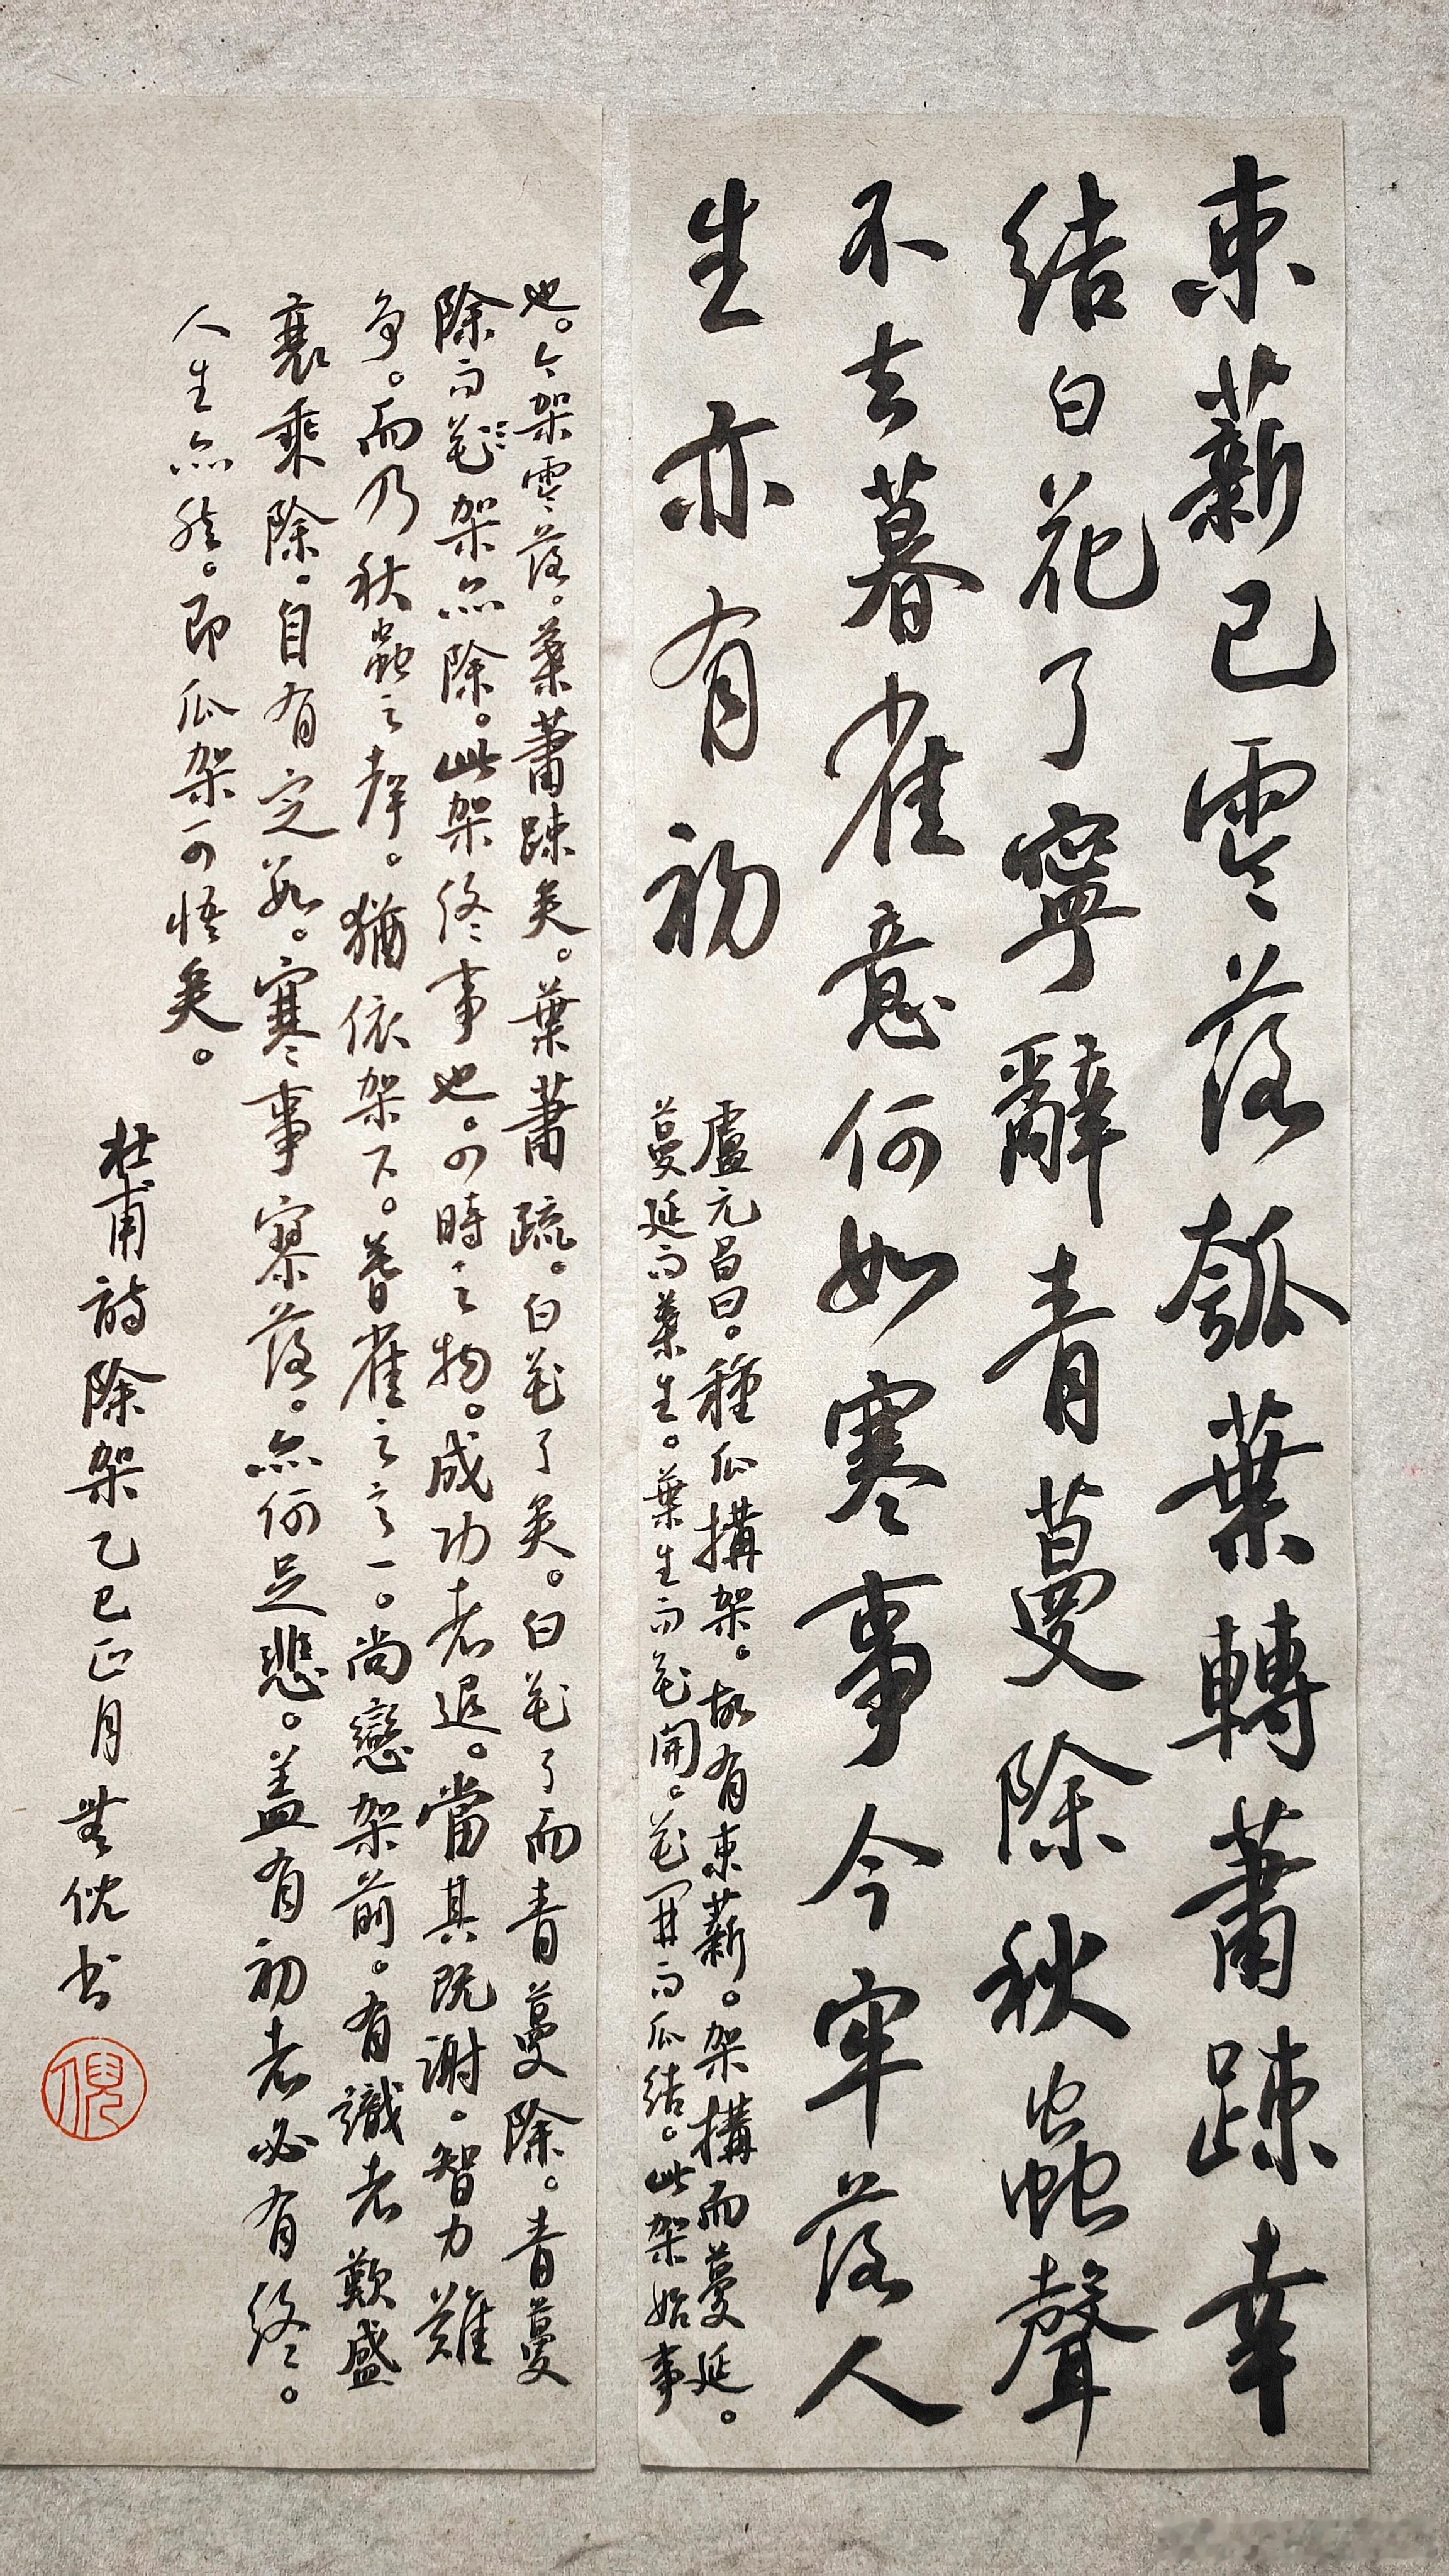 束薪已零落瓠葉轉蕭踈幸
結白花了寧辭青蔓除秋蟲聲
不去暮雀意何如寒事今牢落人
生亦有初
盧元昌曰。種瓜搆架。故有束薪。架搆而蔓延。
蔓延而葉生。葉生而花開。花開而瓜結。此架始事
也。今架零落。葉蕭踈矣。葉蕭疏。白花了矣。白花了而青蔓除。青蔓
除而花架亦除。此架終事也。四時之物。成功者退。當其既謝。智力難
争。而乃秋蟲之聲。猶依架下。暮雀之意。尚戀架前。有識者歎盛
衰乘除。自有定數。寒事寥落。亦何足悲。盖有初者必有終。
人生亦然。即瓜架可悟矣。
杜甫詩除架乙巳正月
倪